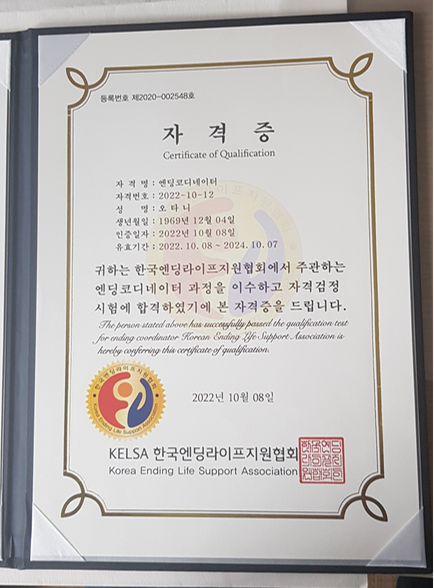 등록번호 제2020-002548호
자 격 증
Certificate of Qualification
자 격 명 : 엔딩코디네이터
자격번호 : 2022-10-12
성 명 : 오 타 니
생년월일 : 1969년 12월 04일
인증일자 : 2022년 10월 08일
유효기간 : 2022. 10. 08 ~ 2024. 10. 07
귀하는 한국엔딩라이프지원협회에서 주관하는
엔딩코디네이터 과정을 이수하고 자격검정
시험에 합격하였기에 본 자격증을 드립니다.
The person stated above has successfully passed the qualification test
for ending coordinator Korean Ending Life Support Association is
hereby conferring this certificate of qualification.
한국엔딩라이프지원협회
Korea Ending Life Support Association
2022년 10월 08일
KELSA 한국엔딩라이프지원협회
Korea Ending Life Support Association